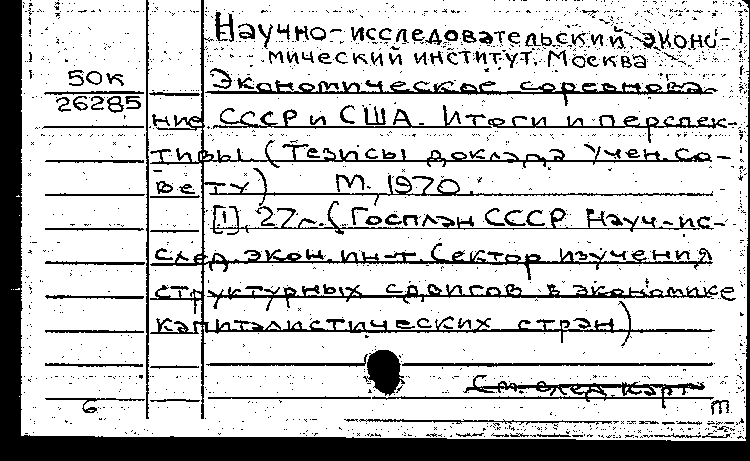 Научно-исследовательский эконо-
мический институт, Москва
50к
26285
Экономическое соревнова-
ние СССР и США. Итоги и перспек-
тивы (Тезисы доклада учен. со-
вету) М., 1970.
[1], 27л. (Госплан СССР Науч.-ис-
след. экон. ин-т Сектор изучения
структурных сдвигов в экономике
капиталистических стран)
См. след. карт
6
т